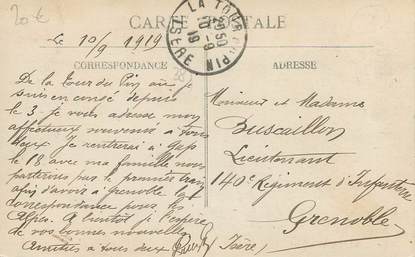 20€
CARTE POSTALE
Le 10/9 1919
LA TOUR DU PIN
10-9
19
ISÈRE
CORRESPONDANCE
ADRESSE
De la Tour du Pin où je
suis en congé depuis
le 3. je vous adresse mon
affectueux souvenir à tous
deux. Je rentrerai à
le 18 avec ma famille nous
partirons par le premier train
afin d'avoir à Grenoble
correspondance pour les
Alpes. A bientôt j'espère
de vos bonnes nouvelles
Amitiés à tous deux
Monsieur et Madame
Buscaillon
Lieutenant
140e Régiment d'Infanterie
Grenoble
(Isère)